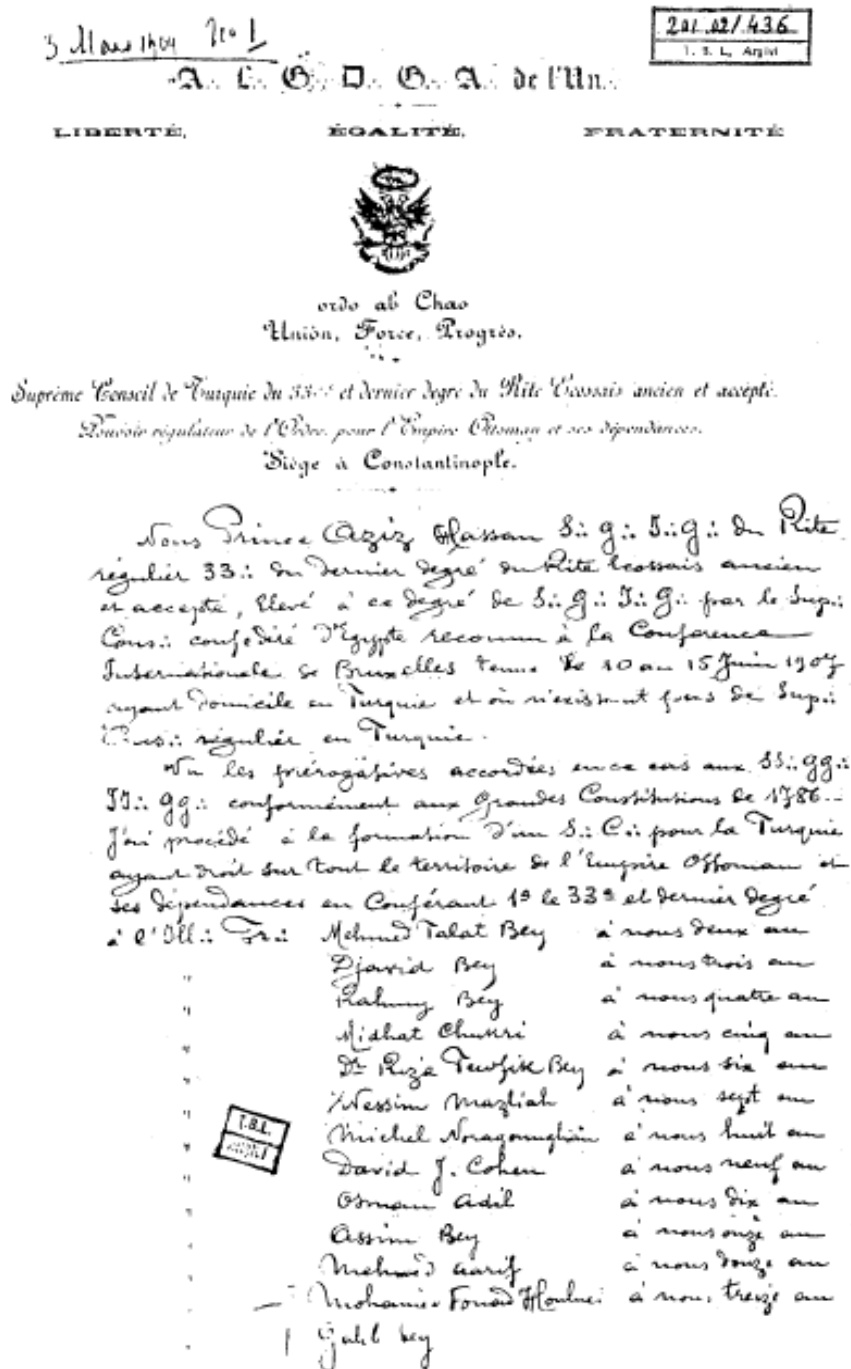 3 Mars 1909 No 1
201.02/436
T. B. L. Arşivi
A∴ L∴ G∴ D∴ G∴ A∴ de l'Un∴
LIBERTÉ, ÉGALITÉ, FRATERNITÉ
ordo ab Chao
Union, Force, Progrès.
Suprême Conseil de Turquie du 33 et dernier degré du Rite Ecossais ancien et accepté.
Pouvoir régulateur de l'Ordre pour l'Empire Ottoman et ses dépendances.
Siège à Constantinople.
Nous Prince Aziz Hassan S∴ G∴ I∴ G∴ du Rite
régulier 33∴ du dernier degré du Rite Ecossais ancien
et accepté, Elevé à ce degré de S∴ G∴ I∴ G∴ par le Sup∴
Cons∴ confédéré d'Egypte reconnu à la Conference
Internationale de Bruxelles tenue le 10 au 15 Juin 1907
ayant domicile en Turquie et où n'existant pas de Sup∴
Cons∴ régulier en Turquie.
Vu les prérogatives accordées en ce cas aux SS∴ GG∴
II∴ GG∴ conformément aux Grandes Constitutions de 1786
J'ai procédé à la formation d'un S∴ C∴ pour la Turquie
ayant droit sur tout le territoire de l'Empire Ottoman et
ses dépendances en Conférant 1º le 33e et dernier degré
à l'Ill∴ Fr∴ Mehmed Talat Bey à nous deux au
" Djavid Bey à nous trois au
" Rahmy Bey à nous quatre au
" Midhat Chukri à nous cinq au
" Dr Riza Tewfik Bey à nous six au
" Nessim Mazliah à nous sept au
" Michel Noradounghian à nous huit au
" David J. Cohen à nous neuf au
" Osman Adil à nous dix au
" Assim Bey à nous onze au
" Mehmed Aarif à nous douze au
" Mohamed Fouad Houlusi à nous treize au
" bey
T.B.L.